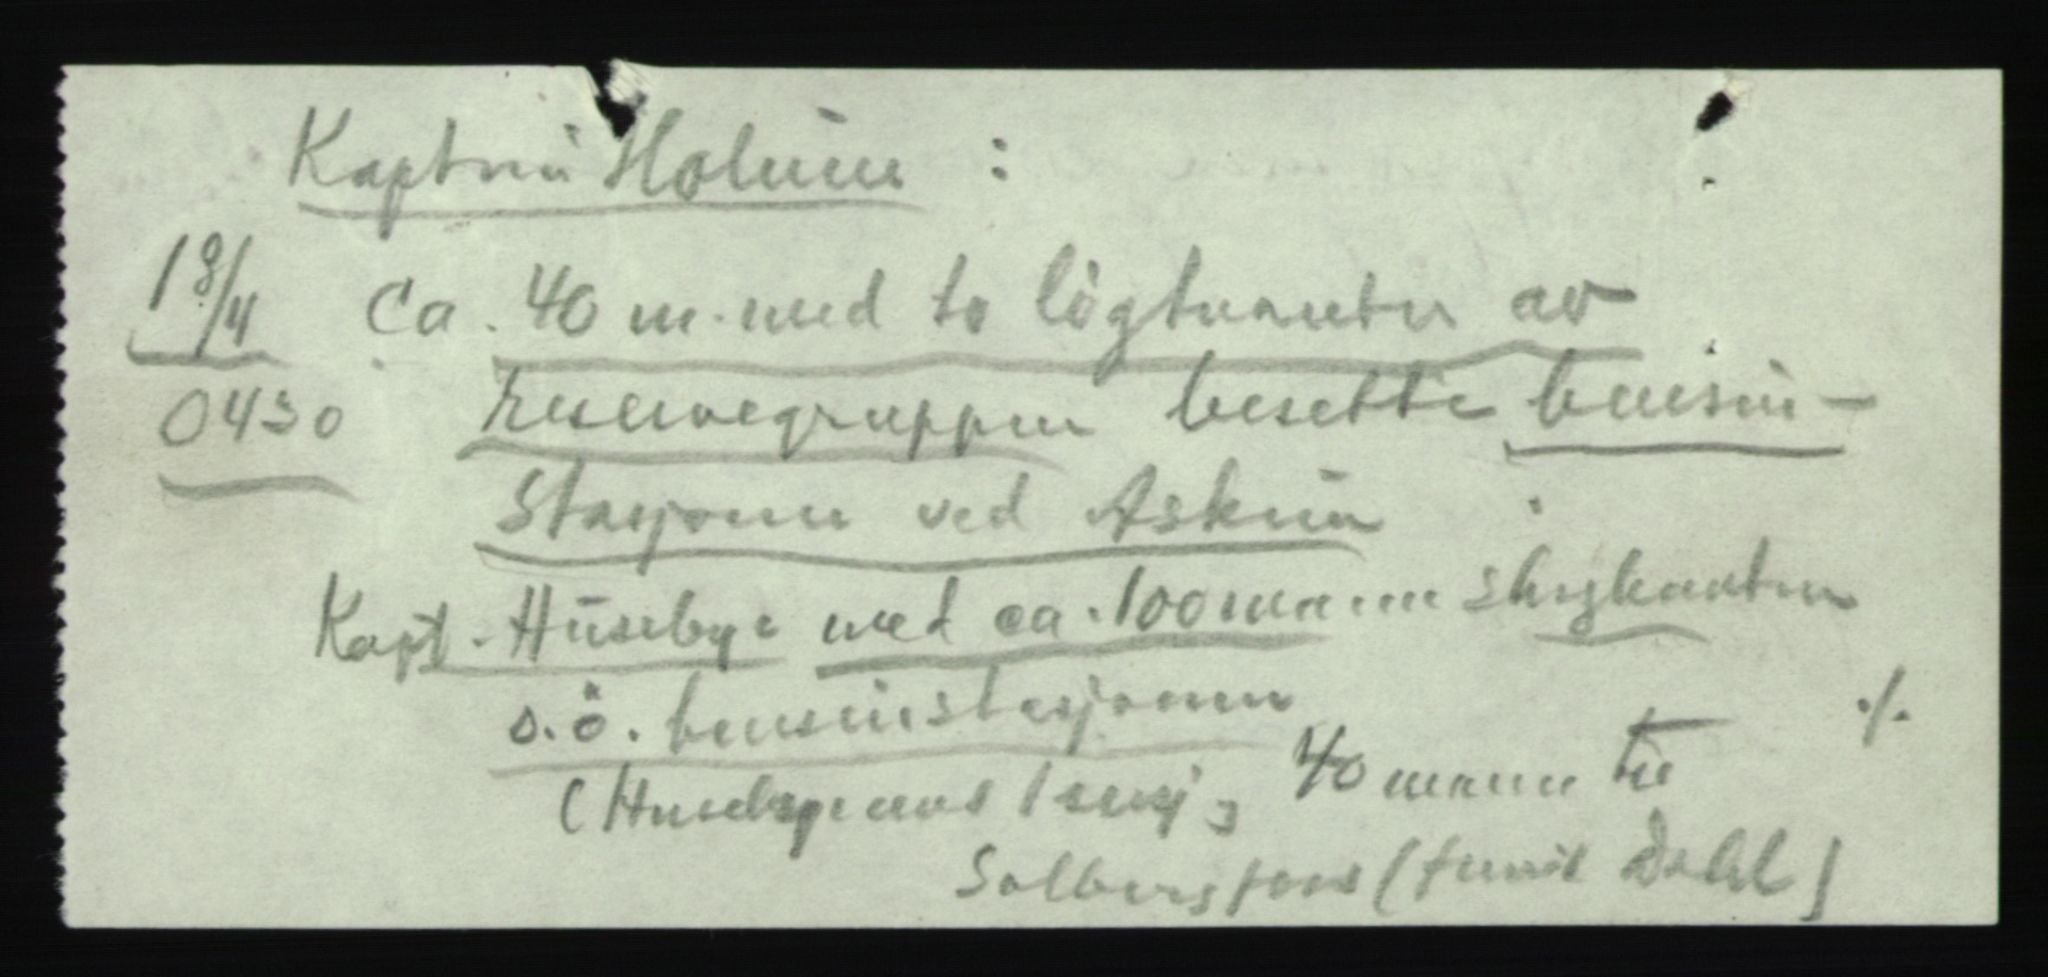 Kaptein Holum :
18/4 Ca. 40 m. med to løytnanter av
0430 reservegruppen besette bensin-
stasjonen ved Askim
Kapt. Huseby: med ca. 100 mann skogkanten
s.ö. bensinstasjonen
(Husebys 40 mann til ./.
Solbergfoss (fenrik Dahl)